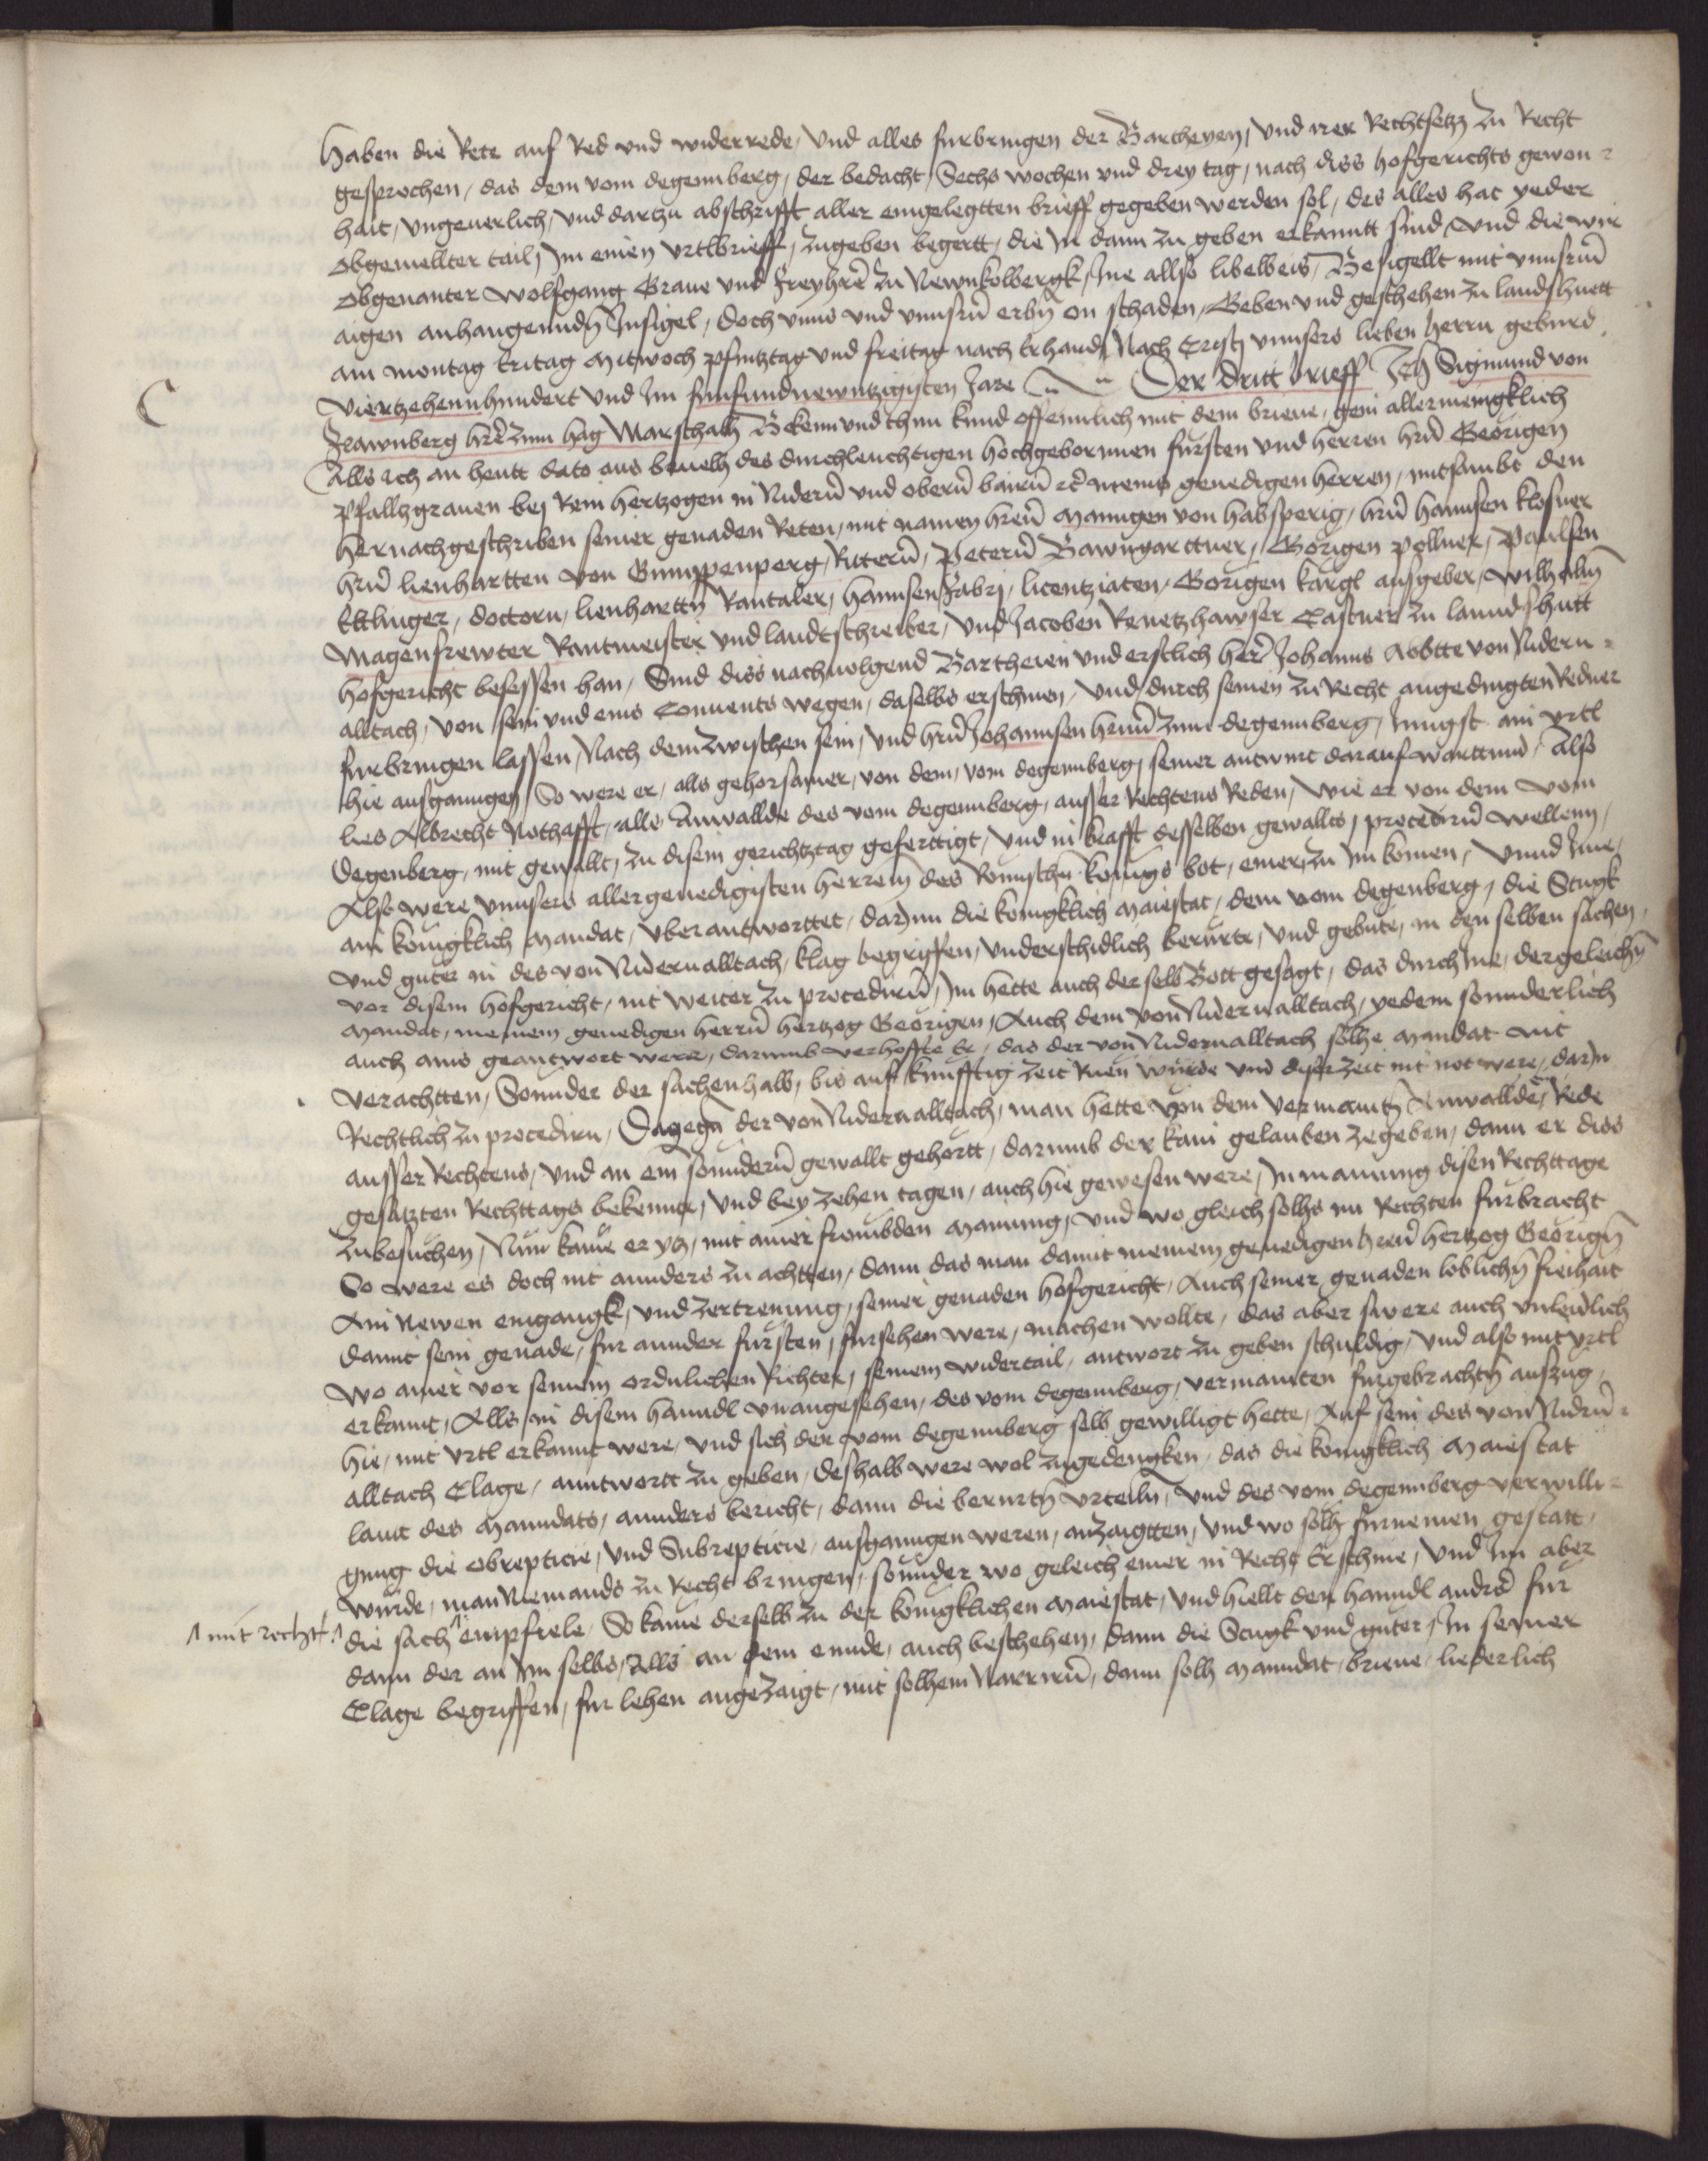 haben die Rete auf Red vnd widerrede, vnd alles furbringen der Bartheyen, vnd irer Rechtsetz zu Recht
gesprochen, das dem vom degennberg, der bedacht, Sechs wochen vnd drey tag, nach diss hofgerichts gewon-
hait, vngeuerlich, vnd dartzu abschrifft aller eingelegtten brieff gegeben werden sol, des alles hat yeder
obgemellter tail, Im einen vrtlbrieff, zugeben begertt, die In dann zu geben erkanntt sind vnd die wir
obgenanter Wolfgang Graue vnd Freyhrē zu Newnkolbergk, Ine allso libelweis, Besigellt mit vnnsrm̄
aigen anhangenndn̄ Innsigel, doch vnns vnd vnnsrn̄ erbn̄ on schaden, Geben vnd geschehen zu landshuett
am montag Eritag Mitwoch pfintztag vnd freitag nach Erhardj Nach Cristj vnnsers lieben herrn geburd
Viertzehennhundert vnd Im funfundnewntzigisten Jare Der dritt brieff Ich Sigmund von
Frawnberg hrē zum hag Marschalh Bekenn vnd thun kund offennlich mit dem brieue, gein allermengklich
Alls ich an heutt dato aus beuelh des durchleuchtigen hochgebornnen fursten vnd herren hrn̄ Georigen
Pfalltzgrauen bej Rein hertzogen in Niderm̄ vnd oberm̄ bairm̄ rc̄ meins genedigen herren, mitsambt den
hernachgeschriben seiner genaden Reten, mit namen hrern̄ Mangen von habsperig, hrn̄ hannsen klosner
hrn̄ lienhartten von Gumppenperg, Riterm̄, Peterm̄ Bawngarttner, Gorigen pollner, Paulsen
Ettlinger, doctorn, lienharttn̄ Rantaler, hannsen Fabrj, licentziaten, Gorigen kargl ausgeber, Wilhalm̄
Magensrewter Rantmeister vnd landtschreiber, vnd Jacoben Renetzhawser Castner zu lanndshutt
hofgericht besessen han, Sind diss nachuolgend Bartheien vnd erstlich herē Johanns Abbtte von Nidern-
alltach, von sein vnd eins Conuents wegen, daselbs erschinen, vnd durch seinen zu Recht angedingten Redner
furbringen lassen, Nach dem zwischen sein, vnd hrn̄ Johannsen hrnn̄ zum degennberg, Jungst ain vrtl
hie ausganngen, So were er, alls gehorsamer, von dem, vom degennberg, seiner antwurt darauf warttund, Also
lies Albrecht Nothafft, alls Anwallde des vom degennberg, ausser Rechtens Reden, Wie er von dem vom
degenberg, mit gewallt, zu disem gerichtztag geferttigt, vnd in krafft desselben gewallts, procedirn̄ wellenn,
Also were vnnsers allergenedigisten herrem des Romischn̄ konigs bot, einer, zu im komen, Vnnd Ime,
ain konigklich mandat, vberantworttet, darinn die konigklich maiestat, dem vom degenberg, die Stugk
vnd guter in des von Nidernalltach, klag begriffen, vnderschidlich berurte, vnd gebute, in den selben sachen,
vor disem hofgericht, nit weiter zu procedirn̄, Im hette auch der selb Bott gesagt, das durch Ine, dergeleichn̄
mandat, meinem genedigen herrn̄ hertzog Georigen, Auch dem von Nidernalltach, yedem sonnderlich
auch ains geantwort were, darumb verhoffte Er, das der von Nidernalltach solhe mandat nit
verachtten, Sonnder der sachenhalb, bis auf kunfftig zeit Ruen wurde vnd diser zeit nit not were, darin
Rechtlich zu procedirn, Dagegn̄ der von Nidernalltach, man hette von dem vermaintn̄ Anwallde, Rede
ausser Rechtens, vnd an ein sonnderm̄ gewallt gehortt, darumb der kain gelauben zegeben, dann er diss
gesatzten Rechttags bekenner, vnd bey zehen tagen, auch hie gewesen were, In mainung disen Rechttage
zubesuchen, Nun kame er ytz, mit ainer frombden Mainung, vnd wo gleich solhs im Rechten furbracht
So were es doch nit annders zu achtten, dann das man damit meinem genedigen hrern̄ hertzog Georign̄
Ain Newen eingangk, vnd zertrenung, seiner genaden hofgericht, Auch seiner genaden loblichn̄ freihait
damit sein genade, fur annder fursten, fursehen were, machen wollte, das aber swere auch vnleidlich
wo ainer vor seinem ordnlichen Richter, seinem widertail, antwort zu geben schuldig, vnd also mit vrtl
erkannt, Alls in disem hanndl vnangesehen, des vom degennberg, vermainten furgebrachtn̄ auszug,
hie, mit vrtl erkannt were, vnd sich der vom degennberg selb gewilligt hette, Auf sein des von Nidrn̄-
alltach Clage, anntwortt zu geben, deshalb were wol zugedengken, das die konigklich Maiestat
laut des Manndats, annders bericht, dann die berurtn̄ vrteiln, vnd des vom degennberg verwilli-
gung die obrepticie, vnd Subrepticie, ausganngen weren, anzaigtten, vnd wo solh furnemen gestatt,
wurde, man Niemands zu Recht bringen, sonnder wo geleich einer in Recht Erschine, vnd Im aber
die sach empfiele, So kame derselb zu der konigklichen Maiestat, vnd hiellt den hanndl andrē fur
mit recht
dann der an Im selbs, Alls an dem ennde, auch beschehen, dann die Stugk vnd guter, In seiner
Clage begriffen, fur lehen angezaigt, mit solhem Narrirn̄, dann solh Manndat, brieue, liederlich